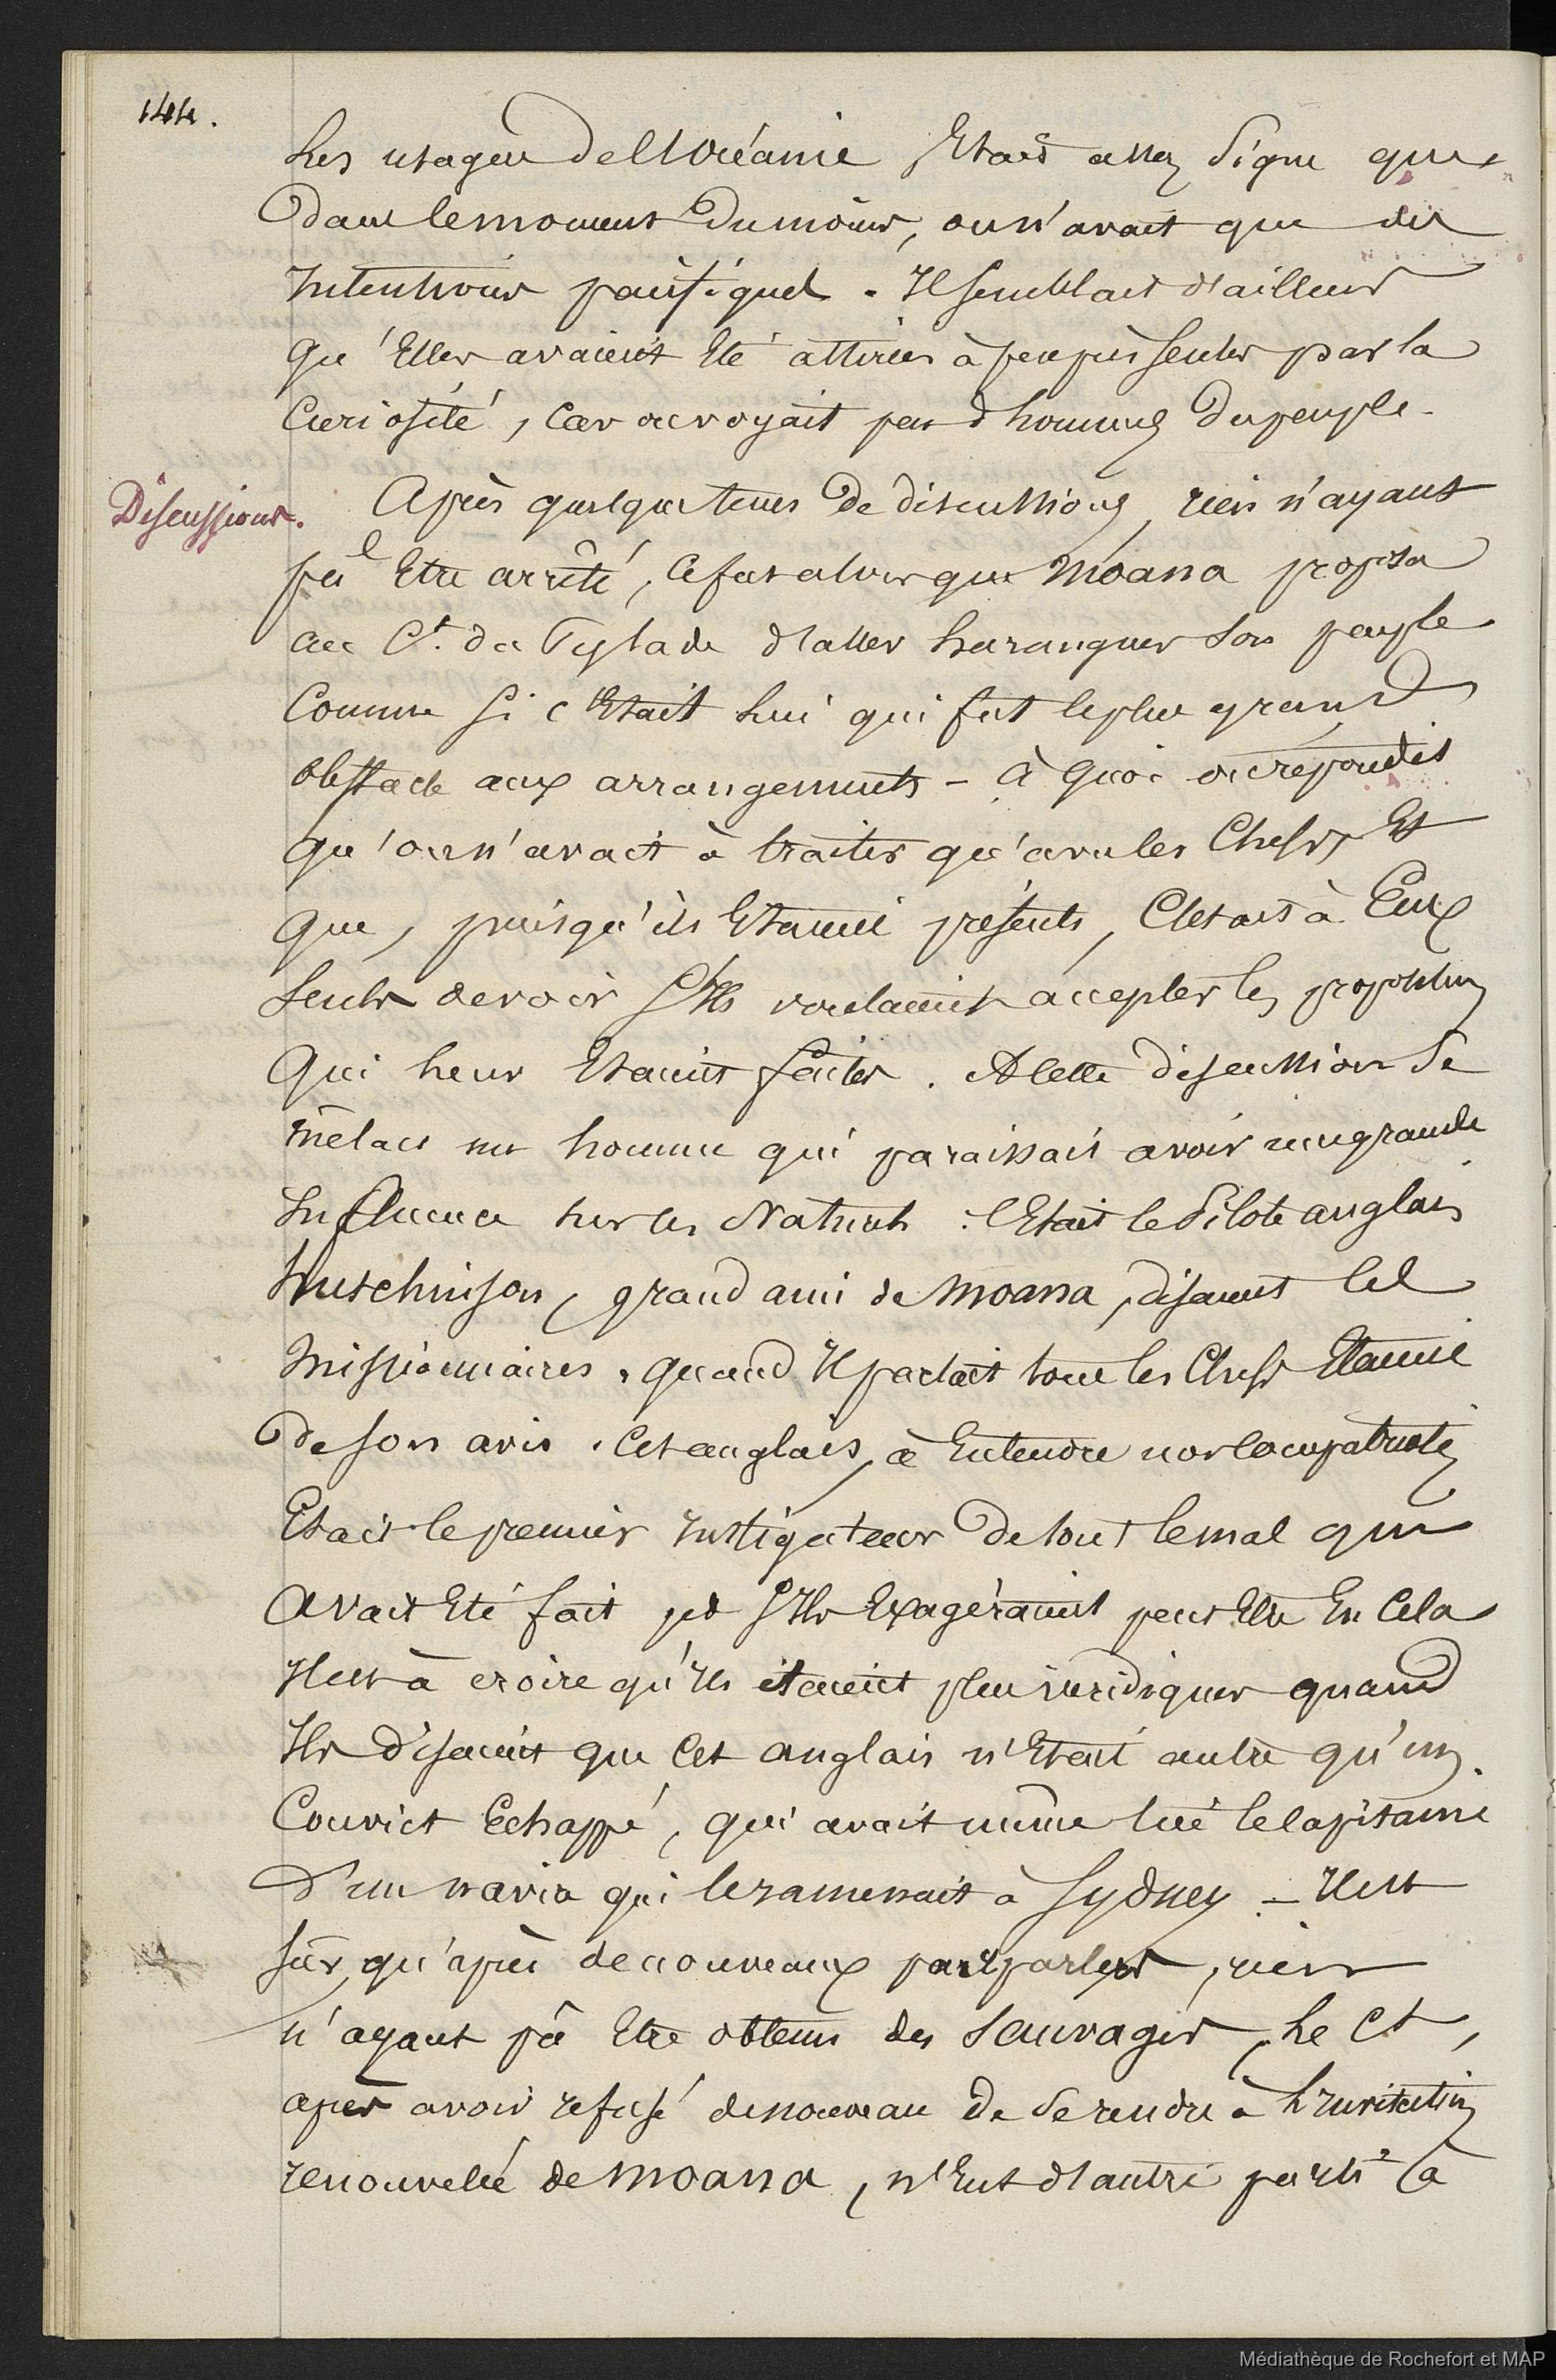 144.
Les usages de l'Océanie Etait assez Signe que
dans le moment du moins, on n'avait que des
Intentions pacifiques. Il semblait d'ailleurs
qu'Elles avaient Eté attirées à peu près seules par la
Curiosité, car on voyait peu d'hommes du peuple.
Discussions.
Après quelques tems de discussions, rien n'ayant
pû Etre arrêté, ce fut alors que Moana proposa
au Ct. de la Pylade d'aller haranguer son peuple
Comme si c'Etait lui qui fut le plus grand
obstacle aux arrangements - à quoi on répondit
qu'on n'avait à traiter qu'avec les Chefs, Et
que, puisqu'ils Etaient présents, C'etait à Eux
seuls de voir s'Ils voulaient accepter les propositions
qui leur Etaient faites. A cette discussion se
mêlait un homme qui paraissait avoir une grande
Influence sur les Naturels : C'Etait le Pilote anglais
Hutschinson, grand ami de Moana, disaient les
Missionnaires. quand Il parlait tous les Chefs Etaient
de son avis. Cet anglais, à Entendre nos compatriotes
Etait le premier Instigateur de tout le mal qui
avait Eté fait, et s'Ils Exagéraient peut Etre En Cela
Il est à croire qu'Ils étaient plus véridiques quand
Ils disaient que Cet anglais n'Etait autre qu'un
Convict Echappé, qui avait même tué le Capitaine
d'un navire qui le ramenait à Sydney - Il est
sûr, qu'après de nouveaux pourparlers, rien
n'ayant pû Etre obtenu des Sauvages, Le Ct,
après avoir refusé de nouveau de se rendre à l'Invitation
renouvelée de Moana, n'Eut d'autre parti à
Médiathèque de Rochefort et MAP